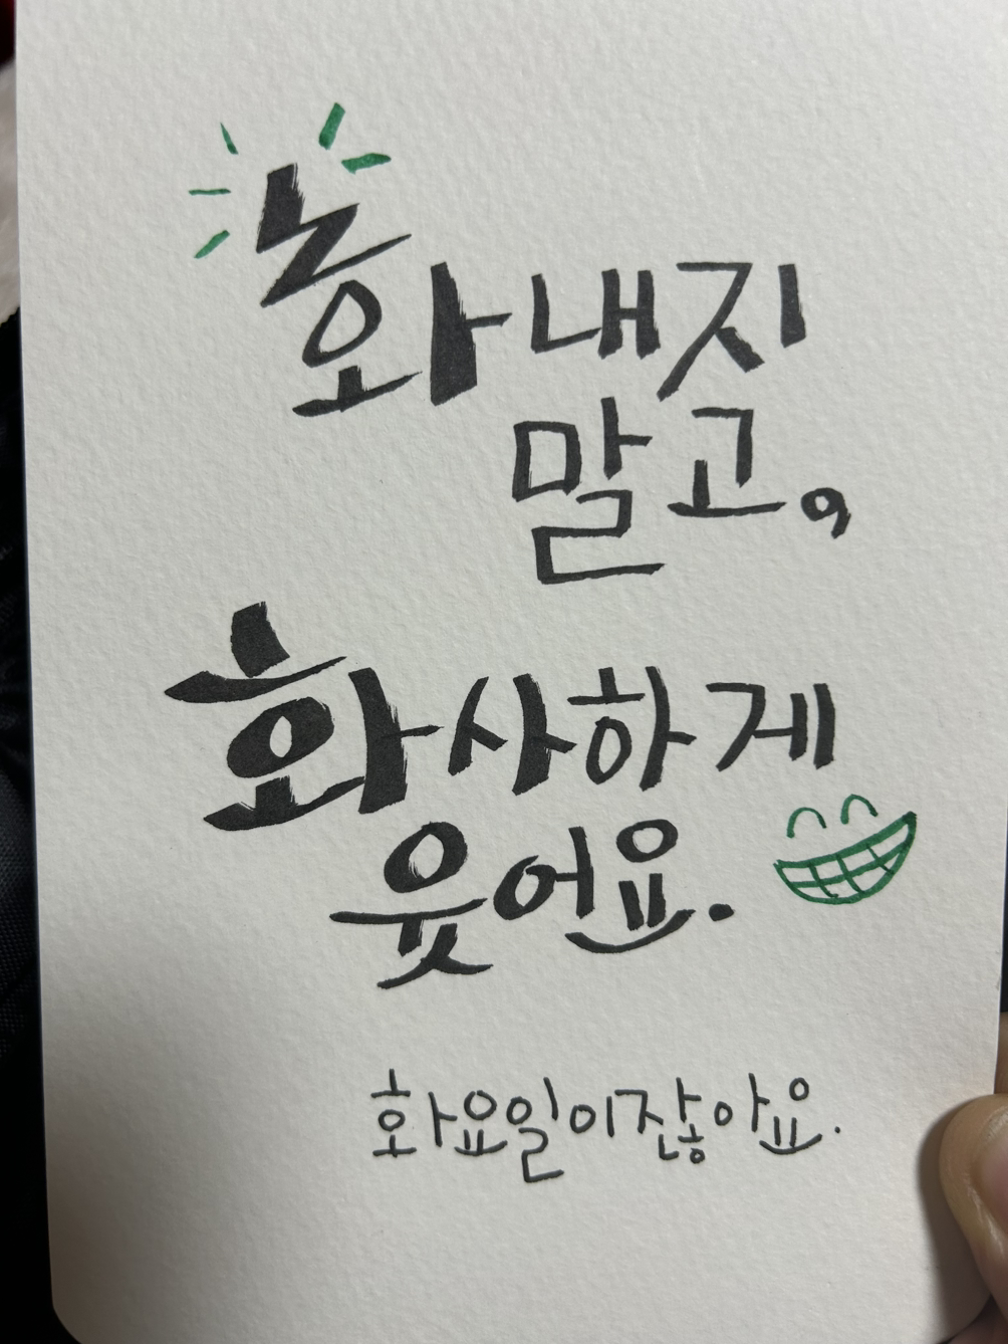 화 내지
말고,
화사하게
웃어요.
화요일이잖아요.